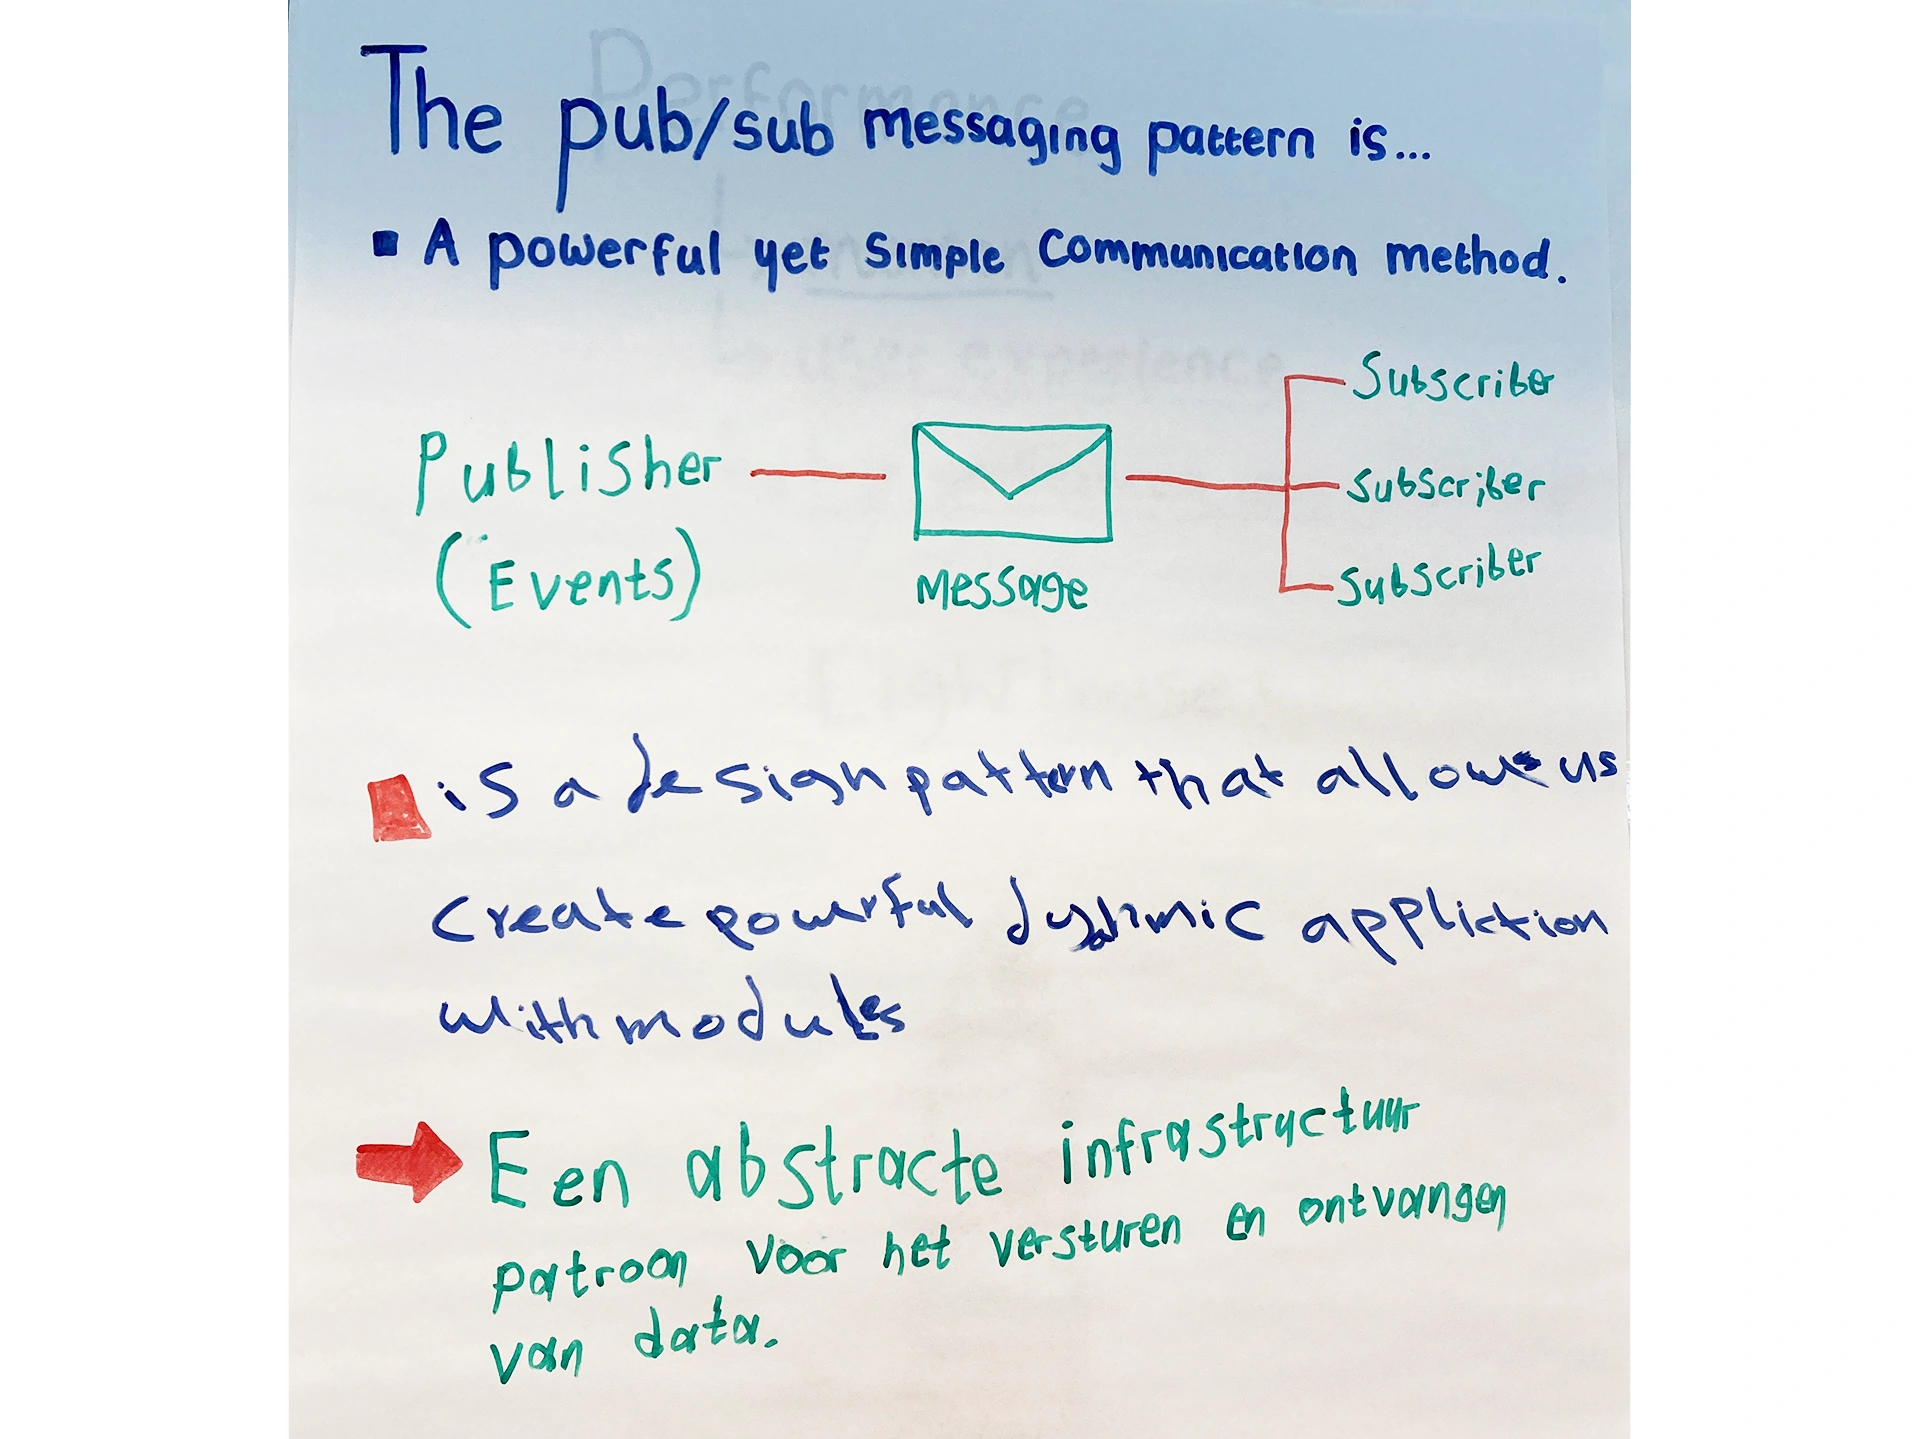 The pub/sub messaging pattern is...
▪ A powerful yet simple communication method.
Subscriber
Publisher
Subscriber
(Events)
Message
Subscriber
is a design pattern that allows us
create powerful dynamic appliction
with modules
Een abstracte infrastructuur
patroon voor het versturen en ontvangen
van data.